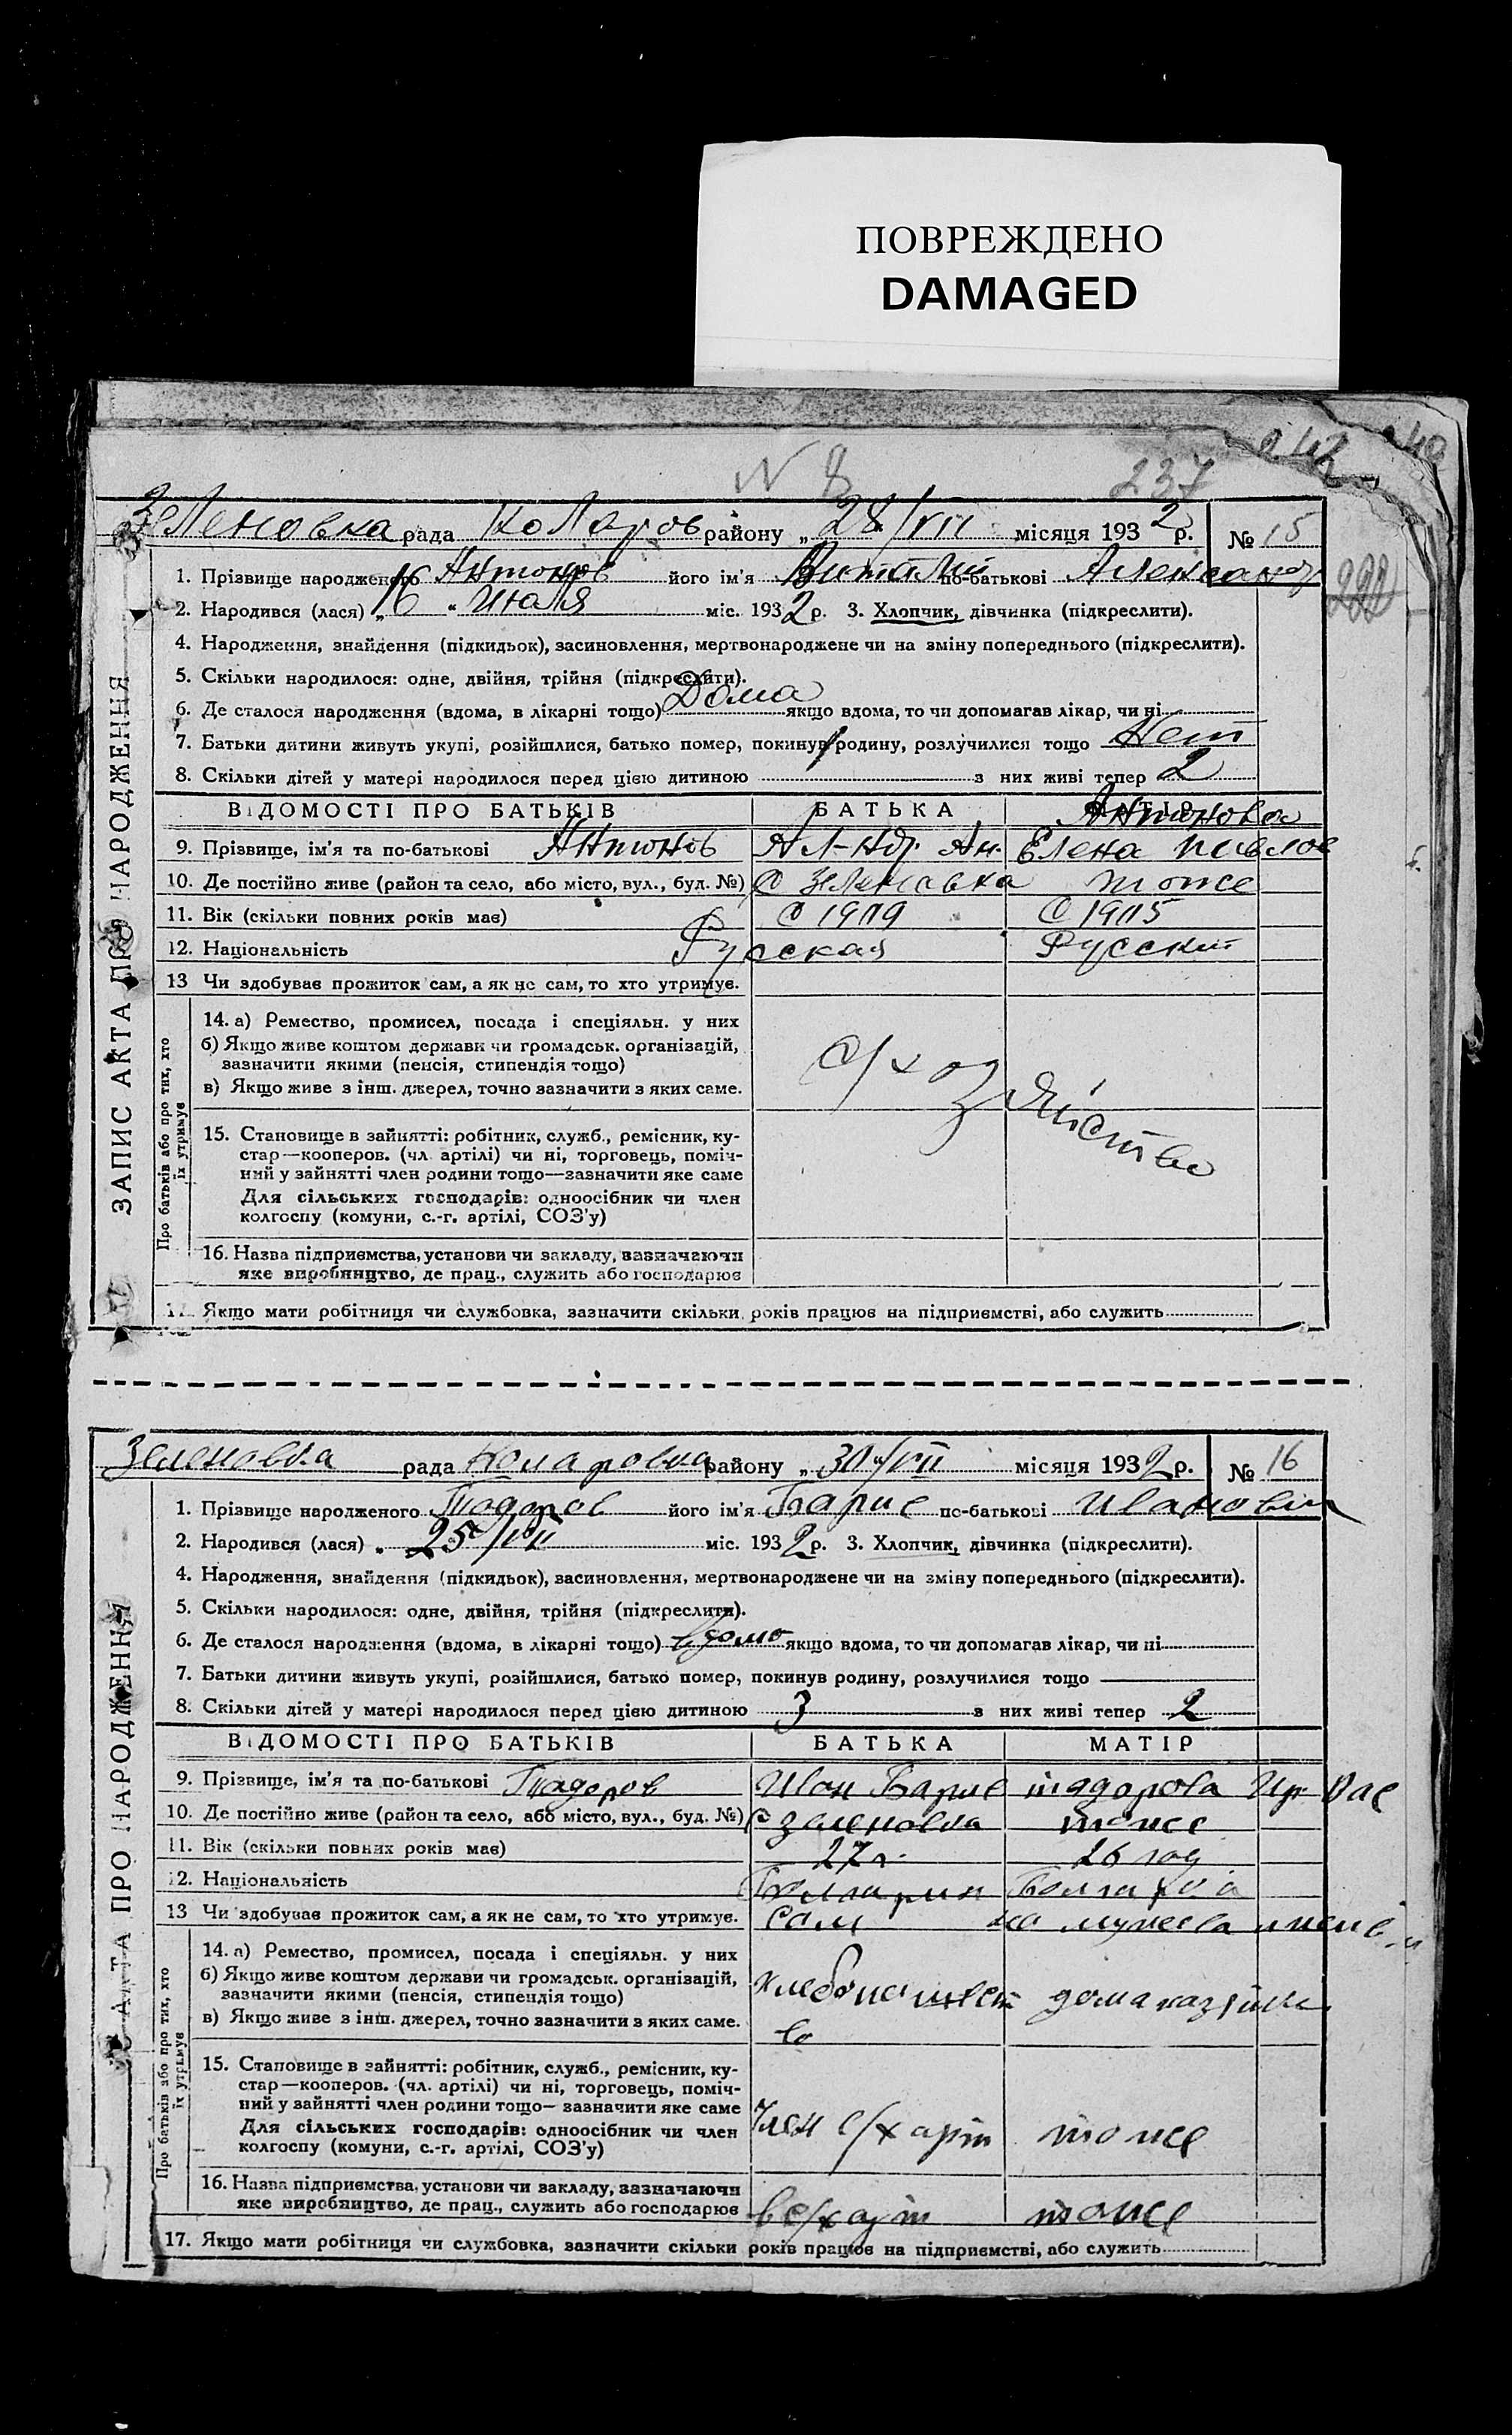 ПОВРЕЖДЕНО
DAMAGED
N 8 237
Зеленовка рада Коларов району „ 28/VII місяця 1932 р. № 15
ЗАПИС АКТА ПРО НАРОДЖЕННЯ
1. Прізвище народженого Антонов його ім'я Виталий по-батькові Александр
2. Народився (лася) „ 16 " Июля міс. 1932 р. 3. Хлопчик, дівчинка (підкреслити).
4. Народження, знайдення (підкидьок), засиновлення, мертвонароджене чи на зміну попереднього (підкреслити).
5. Скільки народилося: одне, двійня, трійня (підкреслити).
6. Де сталося народження (вдома, в лікарні тощо) Дома якщо вдома, то чи допомагав лікар, чи ні
7. Батьки дитини живуть укупі, розійшлися, батько помер, покинув родину, розлучилися тощо Нет
8. Скільки дітей у матері народилося перед цією дитиною з них живі тепер 2
ВІДОМОСТІ ПРО БАТЬКІВ БАТЬКА МАТІР
Антонова
9. Прізвище, ім'я та по-батькові Антонов Ал-др. Ан. Елена Павлов
10. Де постійно живе (район та село, або місто, вул., буд. №) С Зеленовка тоже
11. Вік (скільки повних років має) С 1909 С 1905
12. Національність Русская Русский
13 Чи здобуває прожиток сам, а як не сам, то хто утримує.
Про батьків або про тих, хто їх утримує
14. а) Ремество, промисел, посада і спеціяльн. у них
б) Якщо живе коштом держави чи громадськ. організацій,
зазначити якими (пенсія, стипендія тощо)
в) Якщо живе з інш. джерел, точно зазначити з яких саме.
С/хозяйство
15. Становище в зайнятті: робітник, служб., ремісник, ку-
стар—кооперов. (чл. артілі) чи ні, торговець, поміч-
ний у зайнятті член родини тощо—зазначити яке саме
Для сільських господарів: одноосібник чи член
колгоспу (комуни, с.-г. артілі, СОЗ'у)
16. Назва підприємства, установи чи закладу, зазначаючи
яке виробництво, де прац., служить або господарює
17. Якщо мати робітниця чи службовка, зазначити скільки років працює на підприємстві, або служить
Зеленовка рада Коларовка району „ 30/VII місяця 1932 р. № 16
АКТА ПРО НАРОДЖЕННЯ
1. Прізвище народженого Тодоров його ім'я Барис по-батькові Иванович
2. Народився (лася) „ 25/VII міс. 1932 р. 3. Хлопчик, дівчинка (підкреслити).
4. Народження, знайдення (підкидьок), засиновлення, мертвонароджене чи на зміну попереднього (підкреслити).
5. Скільки народилося: одне, двійня, трійня (підкреслити).
6. Де сталося народження (вдома, в лікарні тощо) вдома якщо вдома, то чи допомагав лікар, чи ні
7. Батьки дитини живуть укупі, розійшлися, батько помер, покинув родину, розлучилися тощо
8. Скільки дітей у матері народилося перед цією дитиною 3 з них живі тепер 2
ВІДОМОСТІ ПРО БАТЬКІВ БАТЬКА МАТІР
9. Прізвище, ім'я та по-батькові Тодоров Иван Барис тодорова Ир Вас
10. Де постійно живе (район та село, або місто, вул., буд. №) с зеленовка тоже
11. Вік (скільки повних років має) 27 г. 26 год
12. Національність Болгарин Болгарка
13 Чи здобуває прожиток сам, а як не сам, то хто утримує. Сам на мужева
Про батьків або про тих, хто їх утримує
14. а) Ремество, промисел, посада і спеціяльн. у них
б) Якщо живе коштом держави чи громадськ. організацій,
зазначити якими (пенсія, стипендія тощо)
в) Якщо живе з інш. джерел, точно зазначити з яких саме.
хлебопашест
во
15. Становище в зайнятті: робітник, служб., ремісник, ку-
стар—кооперов. (чл. артілі) чи ні, торговець, поміч-
ний у зайнятті член родини тощо— зазначити яке саме
Для сільських господарів: одноосібник чи член
колгоспу (комуни, с.-г. артілі, СОЗ'у)
Член с/х арт тоже
16. Назва підприємства, установи чи закладу, зазначаючи
яке виробництво, де прац., служить або господарює в с/х арт тоже
17. Якщо мати робітниця чи службовка, зазначити скільки років працює на підприємстві, або служить